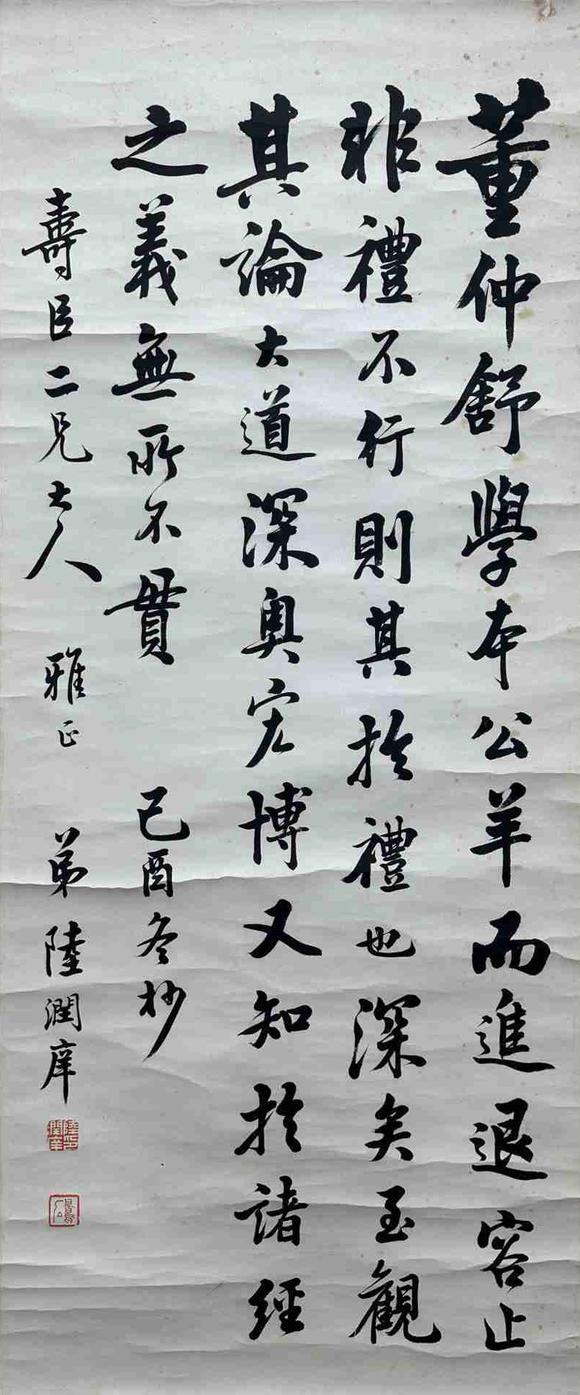 董仲舒學本公羊而進退容止
非禮不行則其於禮也深矣至觀
其論大道深奥宏博又知於諸經
之義無所不貫 己酉冬杪
壽臣二兄大人 雅正 弟陸潤庠